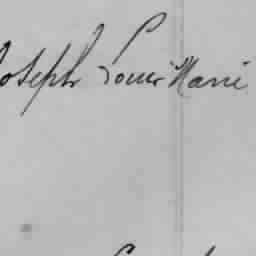 Joseph Louis Marie